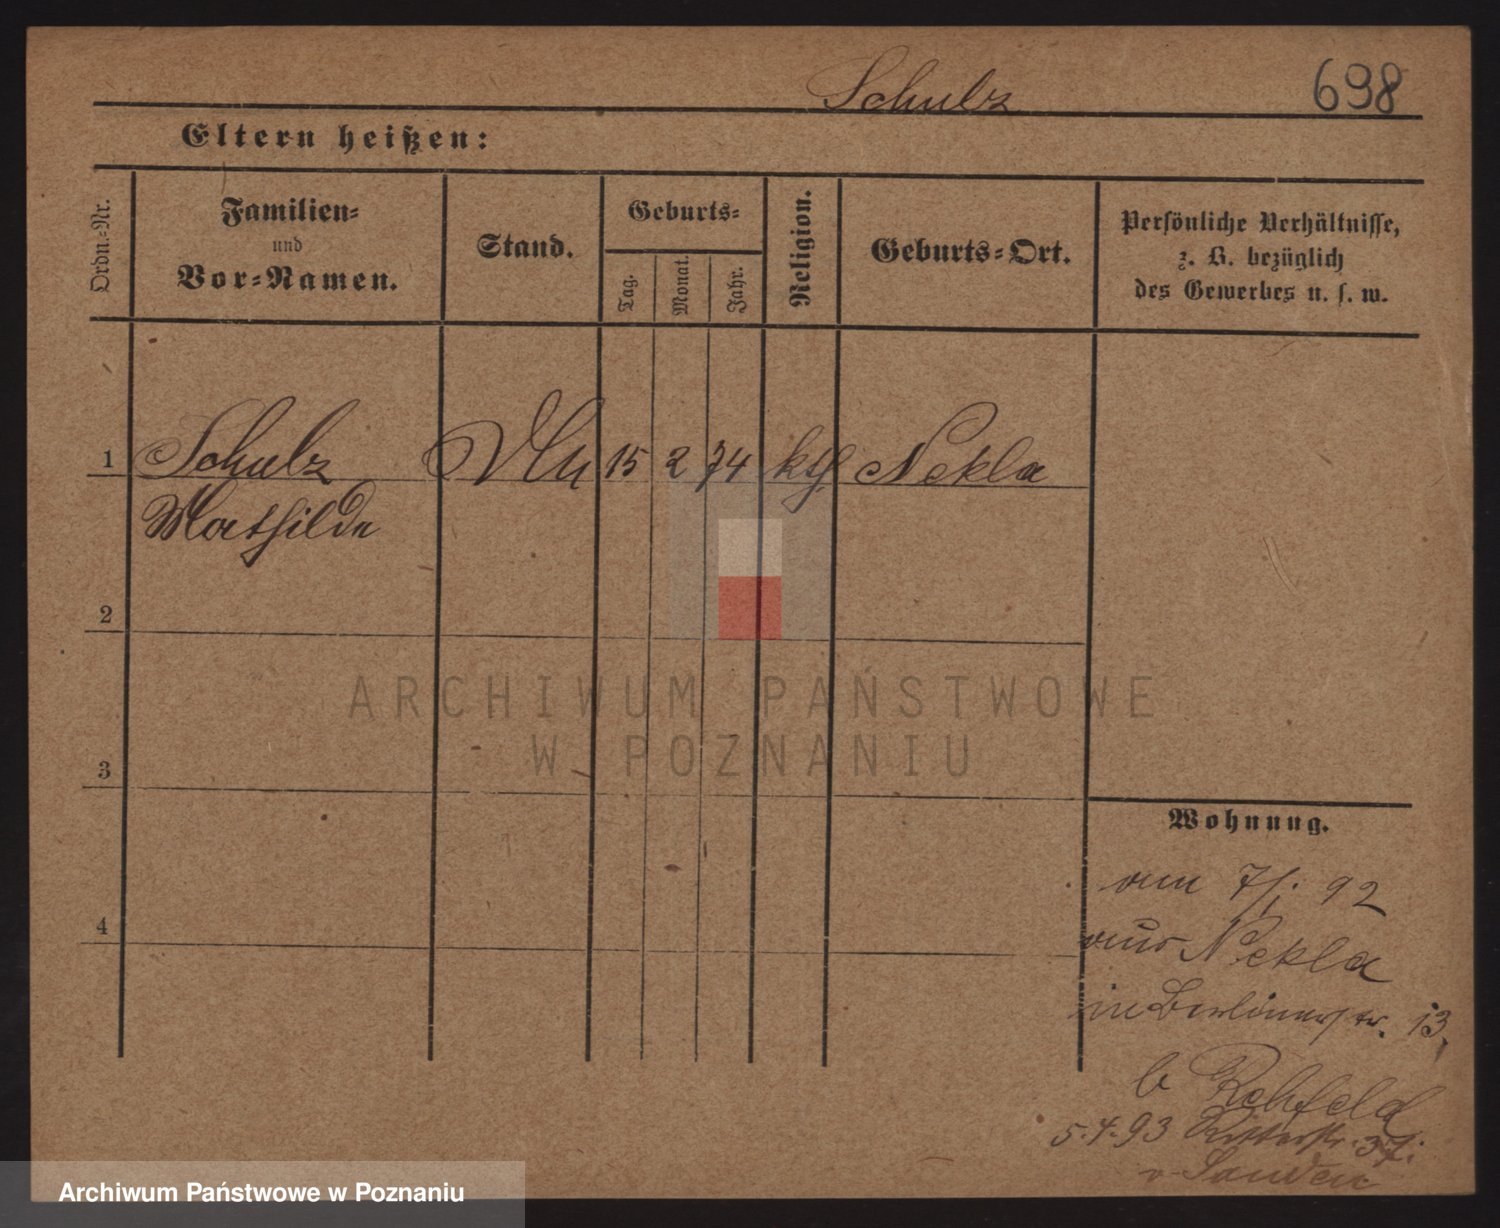 Schulz
698
Eltern heißen:
Ordn.-Nr.
Familien-
und
Vor-Namen.
Stand.
Geburts-
Tag.
Monat.
Jahr.
Religion.
Geburts-Ort.
Persönliche Verhältnisse,
z. B. bezüglich
des Gewerbes u. s. w.
1 Schulz 15 2 74 kth Nekla
Mathilde
2
3
4
ARCHIWUM PAŃSTWOWE
W POZNANIU
Wohnung.
am 7/1. 92
aus Nekla
in Berlinerstr. 13,
b Rehfeld
5.4.93 Ritterstr. 37.
v Sanden
Archiwum Państwowe w Poznaniu